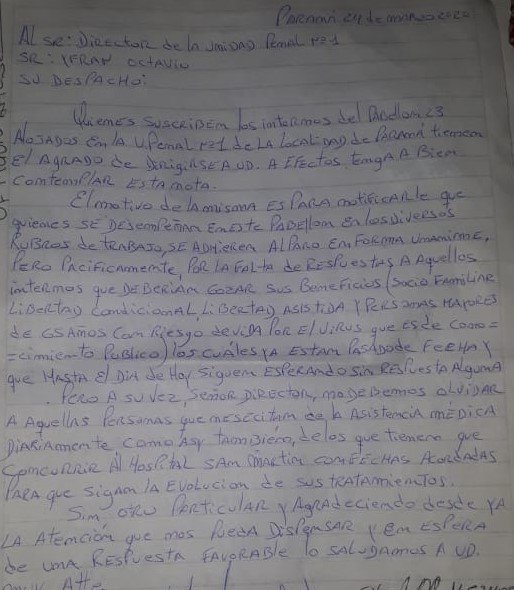 Paraná 24 de marzo 2020
Al sr: Director de la unidad Penal Nº1
SR: YFRAN OCTAVIO
SU DESPACHO:
Quienes suscriben los internos del Pavellon
Alojados en la U.Penal nº1 de la Localidad de Paraná tienen
el agrado de dirigirse a UD. A efectos tenga a Bien
contemplar esta nota.
El motivo de la misma es para notificarle que
quienes se desempeñan en este Pabellon en los diversos
Rubros de trabajo, se adhieren al paro en forma unanime,
Pero Pacificamente, por la falta de Respuestas a Aquellos
internos que deberian gozar sus Beneficios (Socio Familiar
Libertad condicional, Libertad Asistida y Personas mayores
de 65 años con riesgo de vida por el virus que es de cono=
=cimiento Publico) los cuales ya estan pasado de fecha y
que hasta el dia de hoy siguen esperando sin respuesta alguna
. Pero a su vez, señor director, no debemos olvidar
a aquellas personas que nescecitan de la asistencia medica
diariamente como asy tambien, de los que tienen que
concurrir al Hospital San Martin con fechas acordadas
para que sigan la evolucion de sus tratamientos.
Sin otro particular y agradeciendo desde ya
la atención que nos pueda dispensar y en espera
de una respuesta favorable lo saludamos a UD.
muy Atte